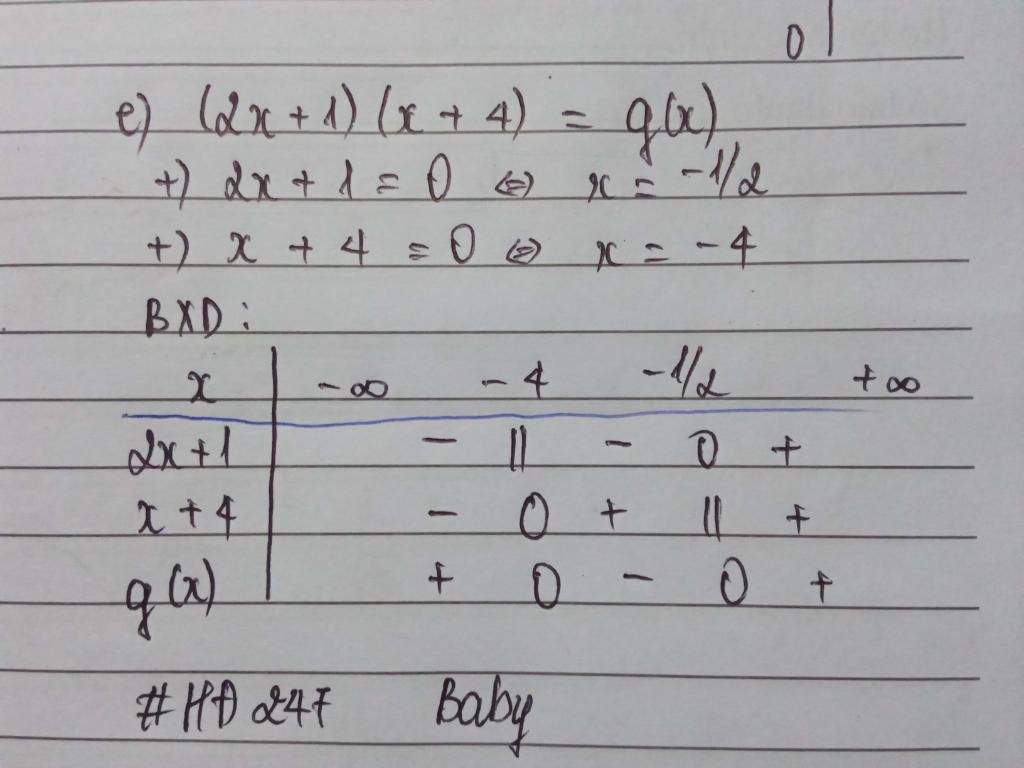 0 |
e) (2x + 1) (x + 4) = g(x)
+) 2x + 1 = 0 ⇔ x = -1/2
+) x + 4 = 0 ⇔ x = -4
BXD :
x | -∞ -4 -1/2 +∞
2x+1 | - || - 0 +
x + 4 | - 0 + || +
g(x) | + 0 - 0 +
#HĐ 247 Baby